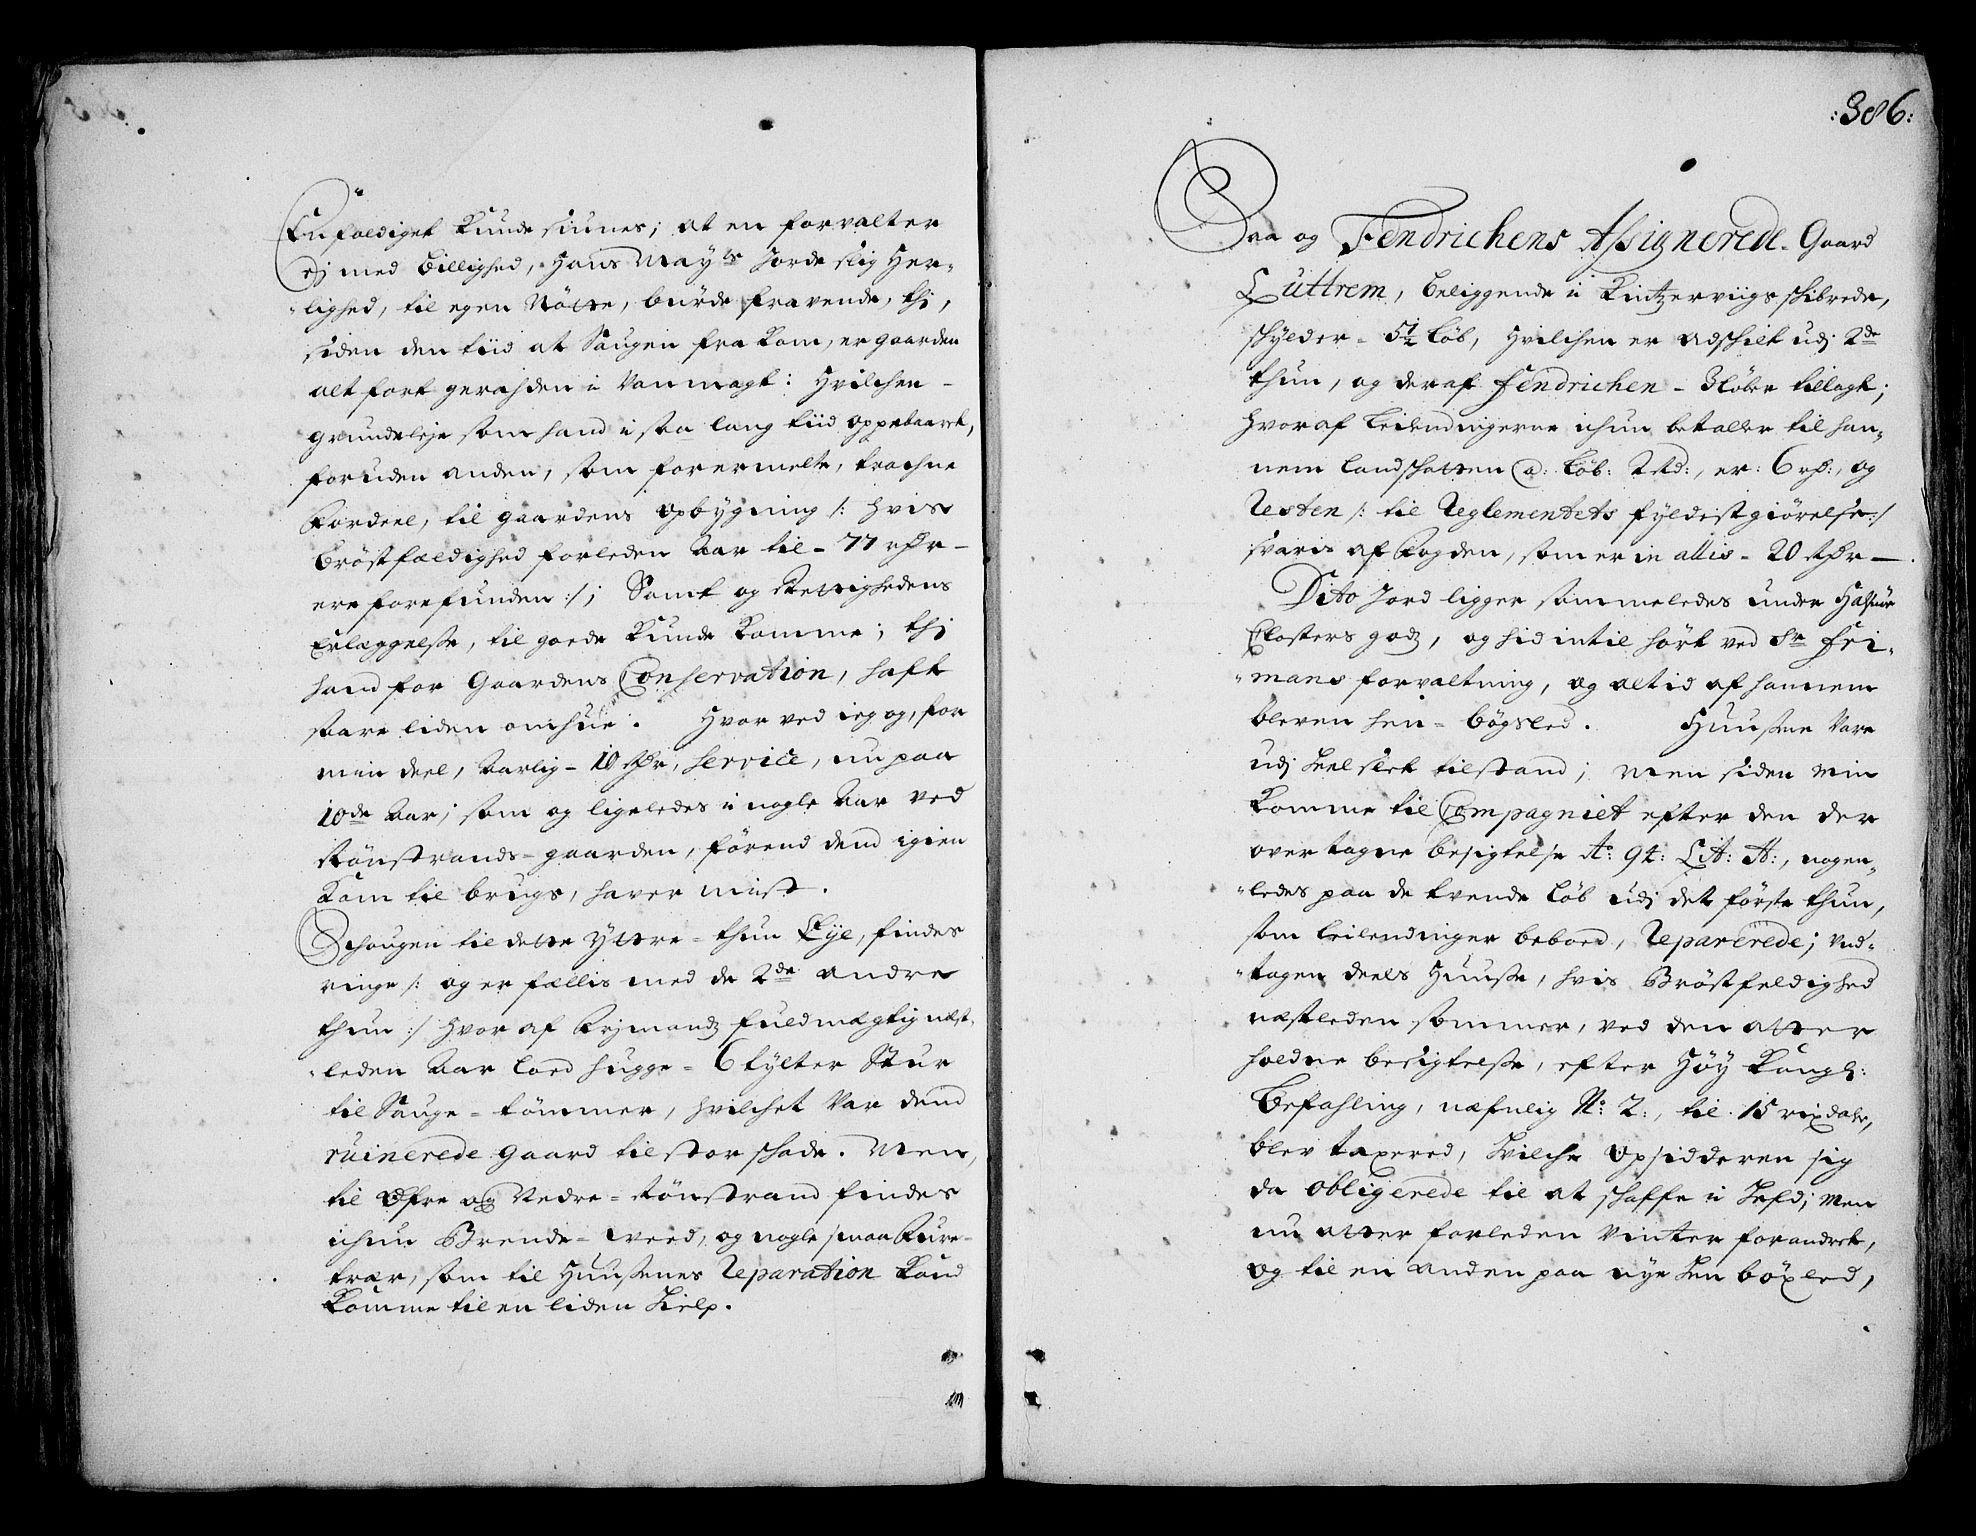 Eufoldiget kunde siunes; at en forvalter
ej med billighed, Hans May:ts Jorde slig Her-
lighed, til egen Nøtte, burde fravende, thi,
siden den tiid at Saugen fra kom, er gaarden
alt fort gerahden i Vanmagt: Hvilchen –
grundeleje som hand i saa lang tiid oppebaaret,
foruden anden, som formelte, trachne
fordeel, til gaardens opbygning /: hvis
brøstfældighed forleden Aar til – 77 rdr –
ere forefunden :/; Samt og Rettighedens
Erlæggelse, til goede kunde komme; thi
hand for Gaardens Conservation, haft
saare liden omhue. Hvor ved ieg og, for
min deel, Aarlig – 10 rdr, service, nu paa
10de Aar; som og ligeledes i nogle Aar ved
Rønstrands-gaarden, førend dend igien
kom til brugs, haver mist.
Schougen til dette Yttre-thun Eye, findes
ringe /: og er fællis med de 2de andre
thun :/ hvor af Frimands fuldmægtig næst-
leden Aar loed hugge – 6 tylter Stur
til Sauge-tømmer, hvilchet var dend
ruinerede gaard til stor schade. Men,
til Øfre og Nedre-Rønstrand findes
ichun Brende-weed, og nogle smaa fure-
trær, som til Huusenes Reparation kand
komme til en liden Hielp.
:386:
Paa og Fendrichens Assignerede Gaard
Luttrem, beliggende i Kintzerviigs schibrede,
schylder – 5½ Løb, hvilchen er adschilt udj 2de
thun, og deraf fendrichen – 3 Løber tillagt;
hvoraf leilendingerne ichun betaller til han-
nem landschatten a: Løb: 2 rd:, er: 6 rd:, og
Resten /: til Reglementets fyldistgiørelse :/
svaris af fogden, som er in allis – 20 rdr –
Dito Jord ligger sommeledes under Halsnøe
Closters godz, og hid intil hørt ved Sr Fri-
mans forvaltning, og altid af hannem
bleven hen-bøgsled. Huusene vare
udj heel slet tilstand; men siden min
komme til Compagniet efter den der
over tagne besigtelse Ao: 94: Lit: A:, nogen-
ledes paa de tvende Løb udj det første thun,
som leilendinger beboed, Reparerede; und-
tagen deels Huuse, hvis Brøstfeldighed
næstleden sommer, ved den atter
holdne besigtelse, efter Høy Kongl:
Befahling, næfnlig No: 2:, til 15 rixdaler,
blev taxered, hvilche opsidderen sig
da obligerede til at schaffe i hefd; Men
nu atter forleden vinter forandret,
og til en anden paa nye hen bøxled,